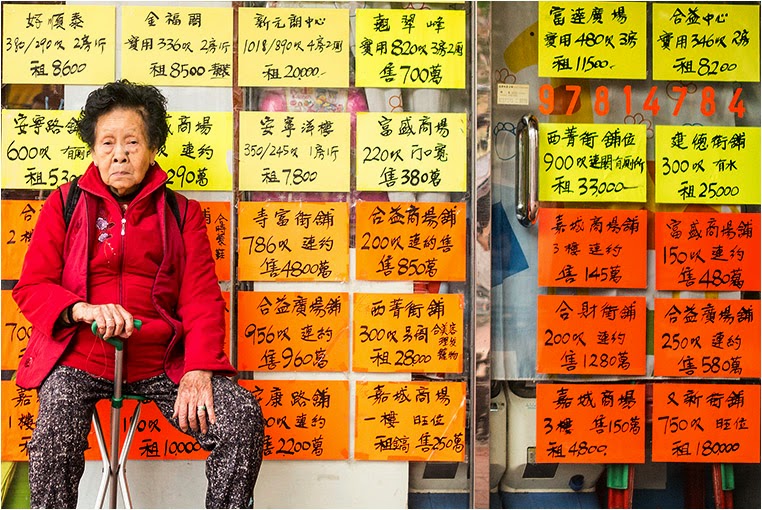 好順泰
380/290呎 2房斤
租8600
金福閣
實用336呎 2房斤
租8500
新元朗中心
1018/890呎 4房2厠
租20000
翹翠峰
實用820呎 3房2厠
售700萬
富達廣場
實用480呎 3房
租11500
合益中心
實用346呎 2房
租8200
97814784
安寧路舖
600呎 有厠
租530
商場
連約
290萬
安寧洋樓
350/245呎 1房斤
租7,800
富盛商場
220呎 門口寬
售380萬
西菁街舖位
900呎連閣有厠所
租33,000
建德街舖
300呎 有水
租25000
2樓
合時裝鞋
壽富街舖
786呎 連約
售4800萬
合益商場舖
200呎 連約售
售850萬
嘉城商場舖
3樓 連約
售145萬
富盛商場舖
150呎 連約
售480萬
700
合益廣場舖
956呎 連約
售960萬
西菁街舖
300呎 另閣
租28000
合美容
理髮
寵物
合財街舖
200呎 連約
售1280萬
合益廣場舖
250呎 連約
售580萬
嘉
1樓
租10000
安康路舖
00呎 連約
售2200萬
嘉城商場
一樓 旺位
售250萬
嘉城商場
3樓 售150萬
租4800
又新街舖
750呎 旺位
租180000